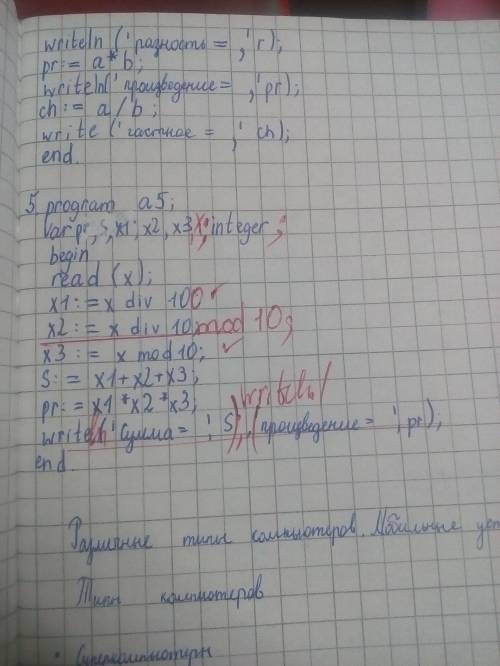 writeln ('разность = ,' r);
pr:= a*b;
writeln(' произведение = ,' pr);
ch:= a/b;
write ('частное = ,' ch);
end.
5 program a5;
var pr, s, x1; x2, x3, x: integer;
begin
read (x);
x1:=x div 100
x2:= x div 10 mod 10;
x3 := x mod 10;
S:= x1+x2+x3;
pr:= x1*x2*x3;
writeln
writeln('сумма= ', s), (произведение = ', pr);
end.
Различные типы компьютеров. Мобильные уст
Типы компьютеров
• Суперкомпьютеры